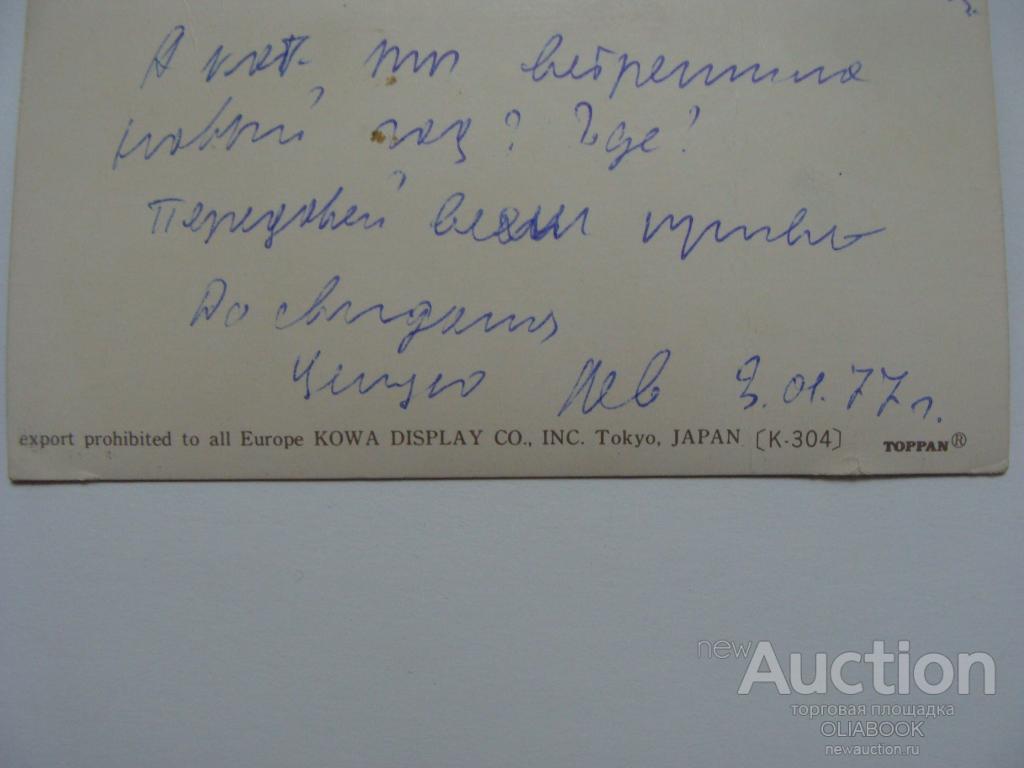 А как ты встретила
новый год? Где?
Передавай всем привет
До свидания
Целую Лев 3.01.77г.
export prohibited to all Europe KOWA DISPLAY CO., INC. Tokyo, JAPAN [K-304] TOPPAN®
newAuction
торговая площадка
OLIABOOK
newauction.ru